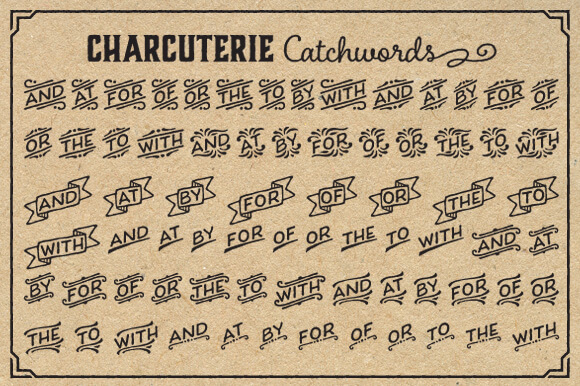 CHARCUTERIE Catchwords
AND AT FOR OF OR THE TO BY WITH AND AT BY FOR OF
OR THE TO WITH AND AT BY FOR OF OR THE TO WITH
AND AT BY FOR OF OR THE TO
WITH AND AT BY FOR OF OR THE TO WITH AND AT
BY FOR OF OR THE TO WITH AND AT BY FOR OF OR
THE TO WITH AND AT BY FOR OF OR TO THE WITH